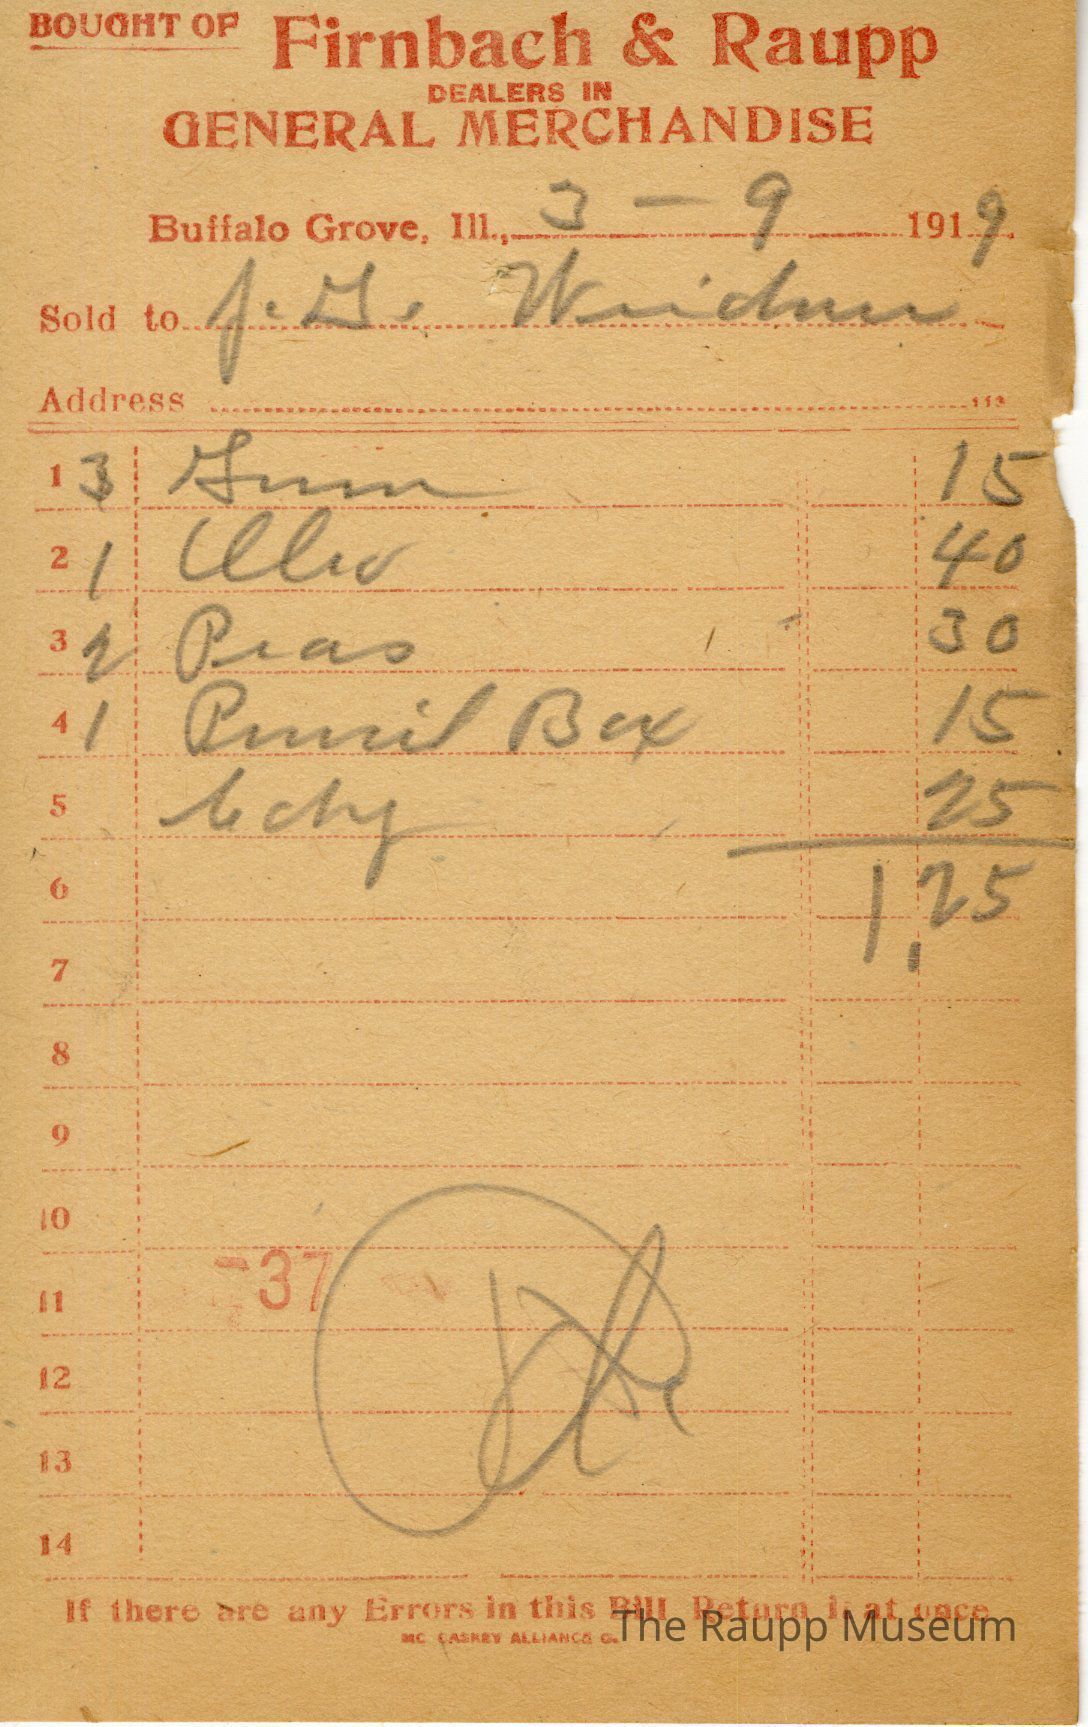 BOUGHT OF Firnbach & Raupp
DEALERS IN
GENERAL MERCHANDISE
Buffalo Grove, Ill., 3 - 9 1919
Sold to J. G. Weidner
Address
1 3 Gum 15
2 1 Oleo 40
3 2 Peas 30
4 1 Pencil Box 15
5 25
6 1.25
7
8
9
10
11 37
12
13
14
If there are any Errors in this Bill Return it at once
MC CASKEY ALLIANCE O.
The Raupp Museum